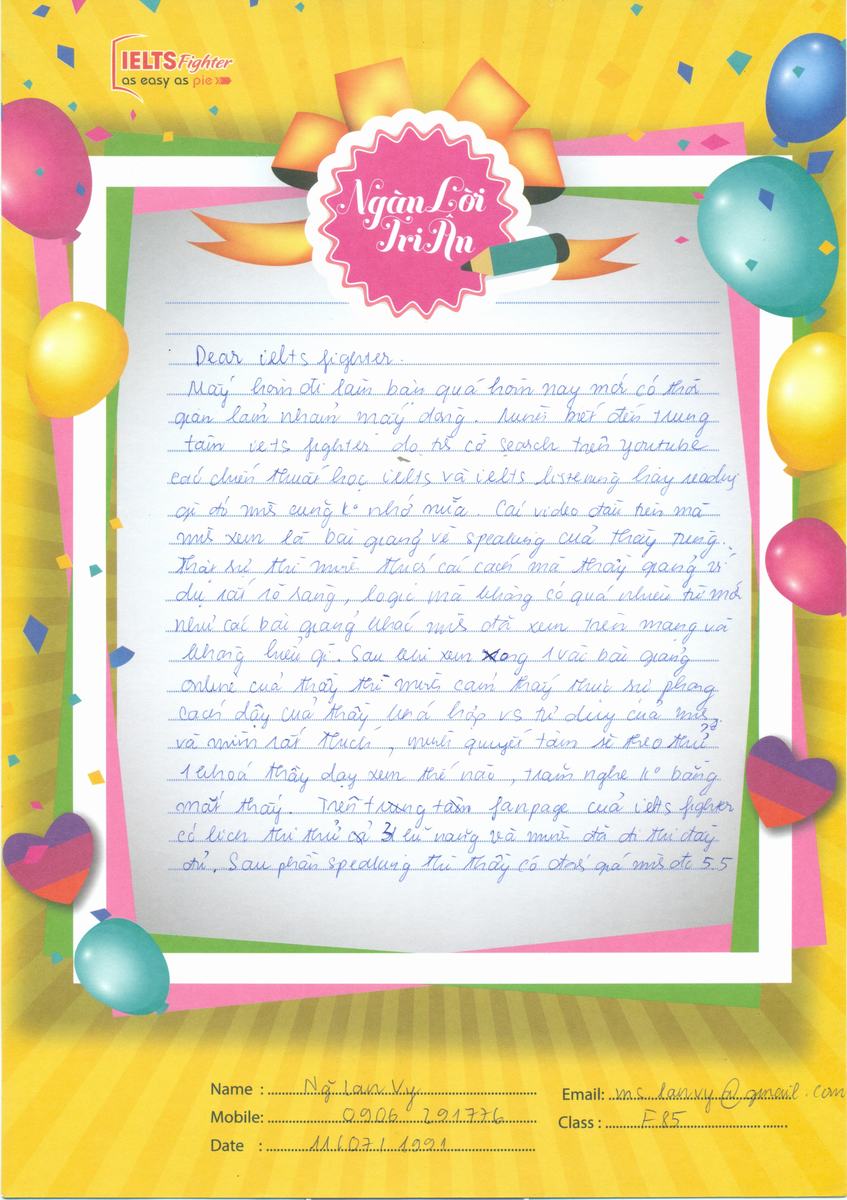 IELTS Fighter
as easy as pie
Ngàn Lời
Tri Ân
Dear ielts fighter.
Mấy hôm đi làm bận quá hôm nay mới có thời
gian làm nhảm mấy dòng. Mình biết đến trung
tâm ielts fighter do t5 có search trên youtube
các chiến thuật học ielts và ielts listening hay reading
gì đó mình cũng k° nhớ nữa. Cái video đầu tiên mà
mình xem là bài giảng về speaking của thầy Tùng.
Thật sự thì mình thích cái cách mà thầy giảng ví
dụ rất rõ ràng, logic mà không có quá nhiều từ mới
như các bài giảng khác mình đã xem trên mạng và
không hiểu gì. Sau khi xem xong 1 vài bài giảng
online của thầy thì mình cảm thấy thực sự phong
cách dậy của thầy khá hợp vs tư duy của mình
và mình rất thích, mình quyết tâm sẽ theo thử
1 khoá thầy dạy xem thế nào, trăm nghe k° bằng
mắt thấy. Trên fanpage của ielts fighter
có lịch thi thử 3 kĩ năng và mình đã đi thi đầy
đủ. Sau phần speaking thì thầy có đánh giá mình đc 5.5
Name : Ng~ Lan Vy
Email: ms.lanvy@gmail.com
Mobile: 0906 291776
Class : F85
Date : 11/07/1991